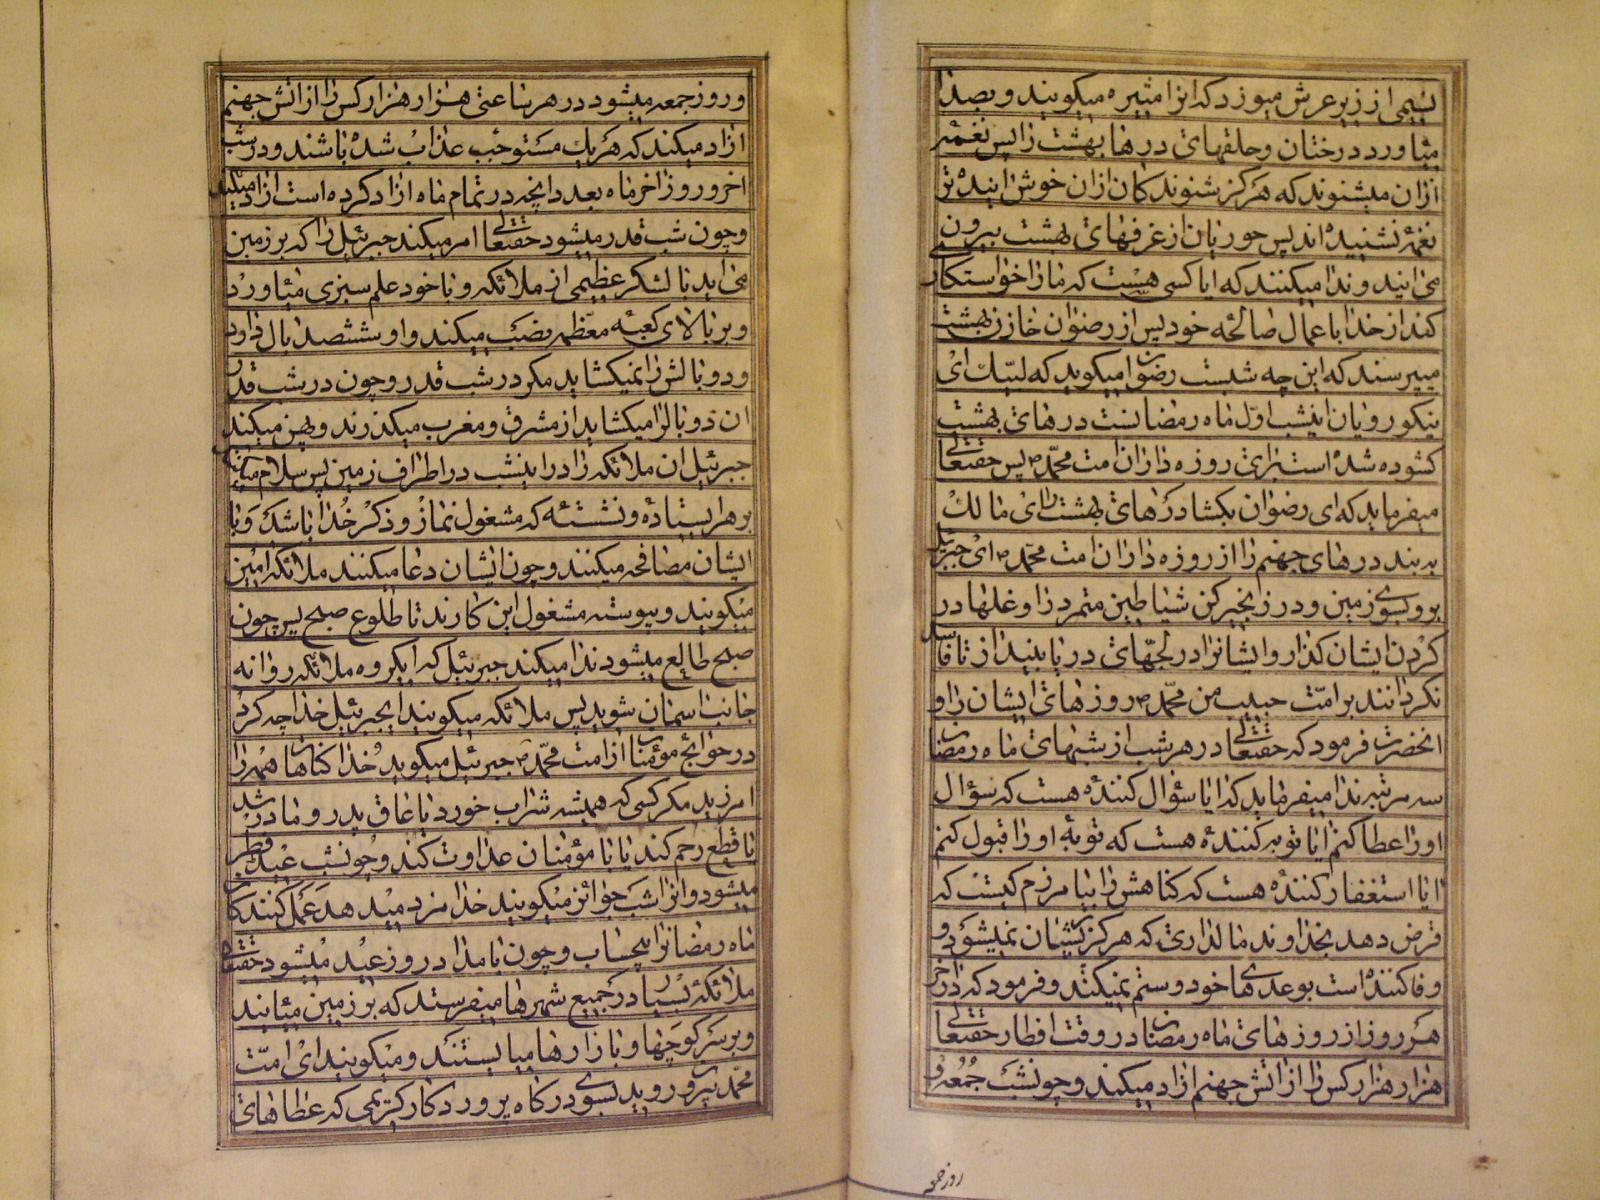 نسیمی از زیر عرش میوزد که انرا مثیره میکویند و بصدا
میاورد درختان و حلقهای درها بهشت را پس نغمهٔ
ازان میشنوند که هرکز شنوندکان ازان خوش ایندهتر
نغمهٔ نشنیده اند پس حوریان از غرفهای بهشت بیرون
می ایند و ندا میکنند که ایا کسی هست که ما را خواستکاری
کند از خدا با عمال صالحه خود پس از رضوان خازن بهشت
میپرسند که این چه شبست رضوان میکوید که لبیک ای
نیکورویان اینشب اول ماه رمضانست درهای بهشت
کشوده شده است برای روزه داران امت محمد ص پس حقتعالی
میفرماید که ای رضوان بکشا درهای بهشت را ای مالک
به بند درهای جهنم را از روزه داران امت محمد ص ای جبرئیل
برو بسوی زمین و در زنجیر کن شیاطین متمرد را و غلها در
کردن ایشان کذار و ایشانرا در لجهای دریا بینداز تا فاسد
نکردانند بر امت حبیب من محمد ص روزهای ایشان را و
انحضرت فرمود که حقتعالی در هر شب از شبهای ماه رمضان
سه مرتبه ندا میفرماید که ایا سؤال کنندهٔ هست که سؤال
او را عطا کنم ایا توبه کنندهٔ هست که توبهٔ او را قبول کنم
ایا استغفار کنندهٔ هست که کناهش را بیامرزم کیست که
قرض دهد بخداوند مالداری که هرکز پشیمان نمیشود و
وفا کننده است بوعدهای خود و ستم نمیکند و فرمود که در اخر
هر روز از روزهای ماه رمضان در وقت افطار حقتعالی
هزار هزار کس را از اتش جهنم ازاد میکند و چونشب جمعه و
روز جمعه
و روز جمعه میشود در هر ساعتی هزار هزار کس را از اتش جهنم
ازاد میکند که هر یک مستوجب عذاب شده باشند و در شب
اخر و روز اخر ماه بعدد انچه در تمام ماه ازاد کرده است ازاد میکند
و چون شب قدر میشود حقتعالی امر میکند جبرئیل را که بر زمین
می اید با لشکر عظیمی از ملائکه و با خود علم سبزی میاورد
و بر بالای کعبهٔ معظمه نصب میکند و او ششصد بال دارد
و دو بالش را نمیکشاید مکر در شب قدر و چون در شب قدر
ان دو بال را میکشاید از مشرق و مغرب میکذرند و پهن میکند
جبرئیل ان ملائکه را در اینشب در اطراف زمین پس سلام میکنند
بر هر ایستاده و نشستهٔ که مشغول نماز و ذکر خدا باشد و با
ایشان مصافحه میکنند و چون ایشان دعا میکنند ملائکه امین
میکویند و پیوسته مشغول این کارند تا طلوع صبح پس چون
صبح طالع میشود ندا میکند جبرئیل که ایکروه ملائکه روانه
جانب اسمان شوید پس ملائکه میکویند ایجبرئیل خدا چه کرد
در حوایج مؤمنان از امت محمد ص جبرئیل میکوید خدا کناهان همه را
امرزید مکر کسی که همیشه شراب خورد یا عاق پدر و مادر باشد
یا قطع رحم کند یا با مؤمنان عداوت کند و چونشب عید فطر
میشود و انرا شب جوائز میکویند خدا مزد میدهد عمل کنندکان
ماه رمضانرا بیحساب و چون بامداد روز عید میشود حقتعالی
ملائکهٔ بسیار در جمیع شهرها میفرستد که بر زمین میایند
و بر سر کوچها و بازارها میایستند و میکویند ای امت
محمد بیرون روید بسوی درکاه پروردکار کریمی که عطاهای